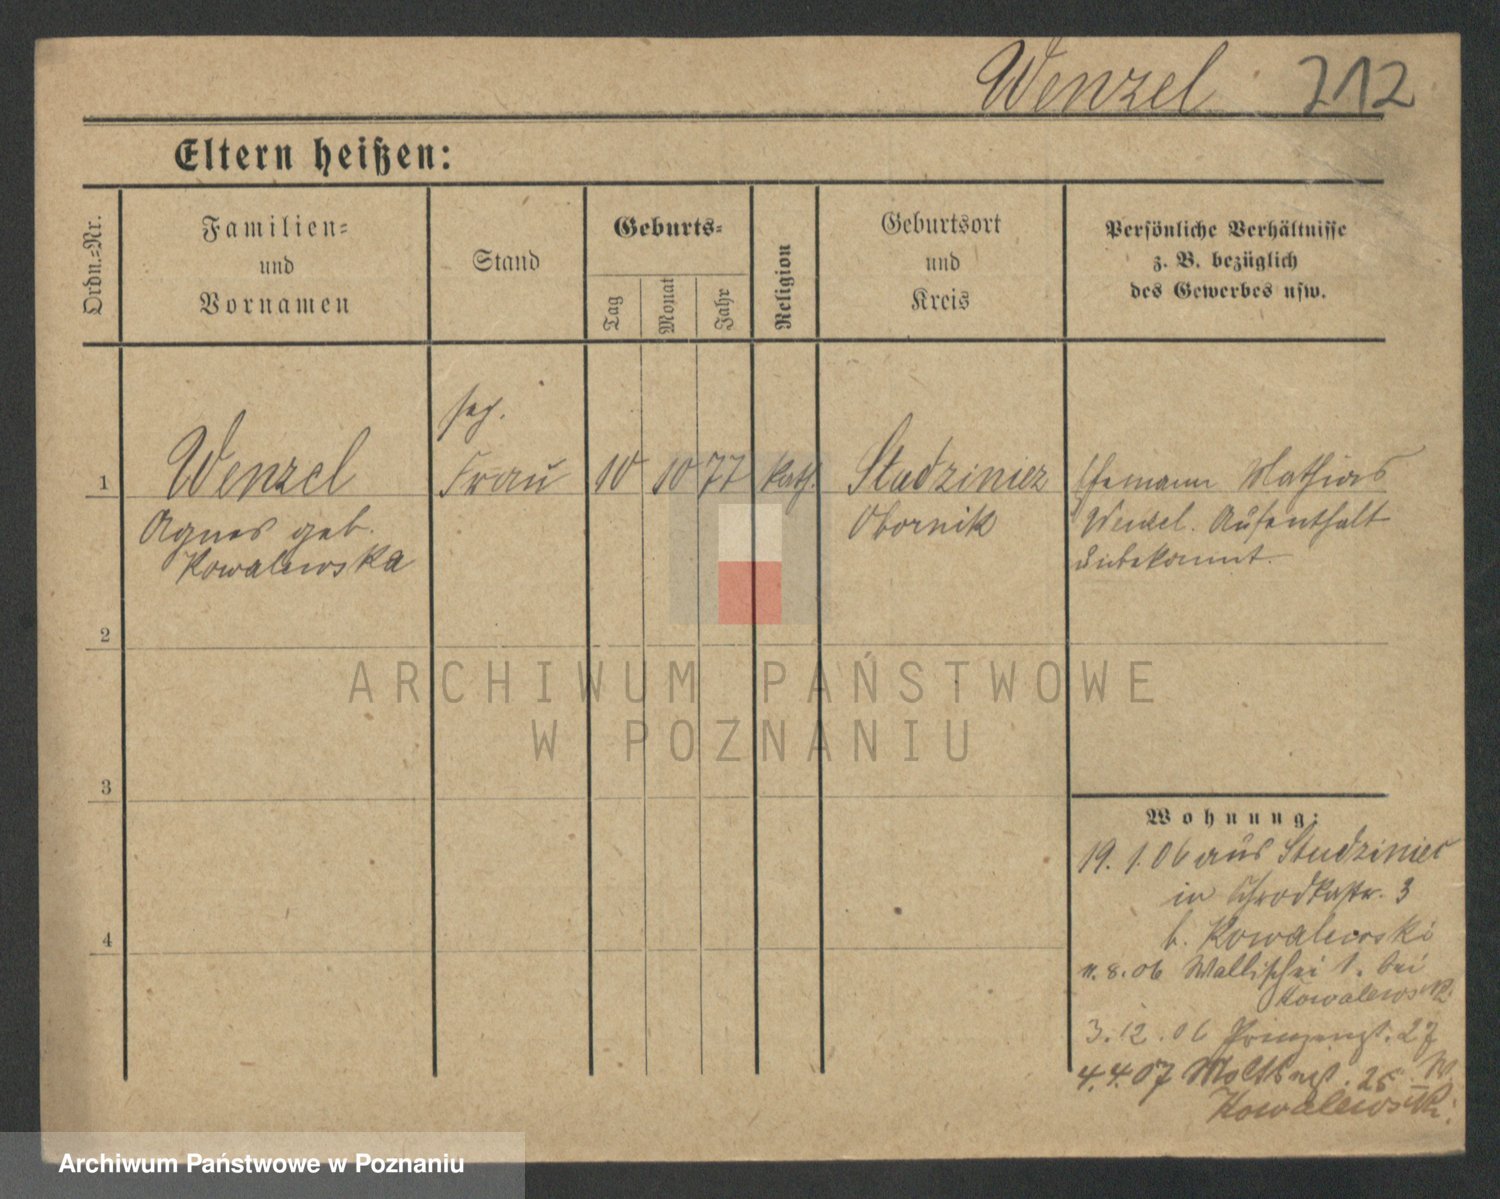 Wenzel 212
Eltern heißen:
Ordn.-Nr.
Familien-
und
Vornamen
Stand
Geburts-
Tag
Monat
Jahr
Religion
Geburtsort
und
Kreis
Persönliche Verhältnisse
z. B. bezüglich
des Gewerbes usw.
1
Wenzel
Agnes geb.
Kowalewska
Frau
10 10 77 kath.
Studziniez
Obornik
Ehemann Mathias
Wenzel. Aufenthalt
unbekannt.
2
3
4
Wohnung:
19. 1. 06 aus Studziniec
in Schrodkastr. 3
b. Kowalewski
11. 8. 06 Wallischei 1. bei
Kowalewski
3. 12. 06 Prinzenst. 27
4. 4. 07 Moltkest. 25
Kowalewski.
ARCHIWUM PAŃSTWOWE
W POZNANIU
Archiwum Państwowe w Poznaniu